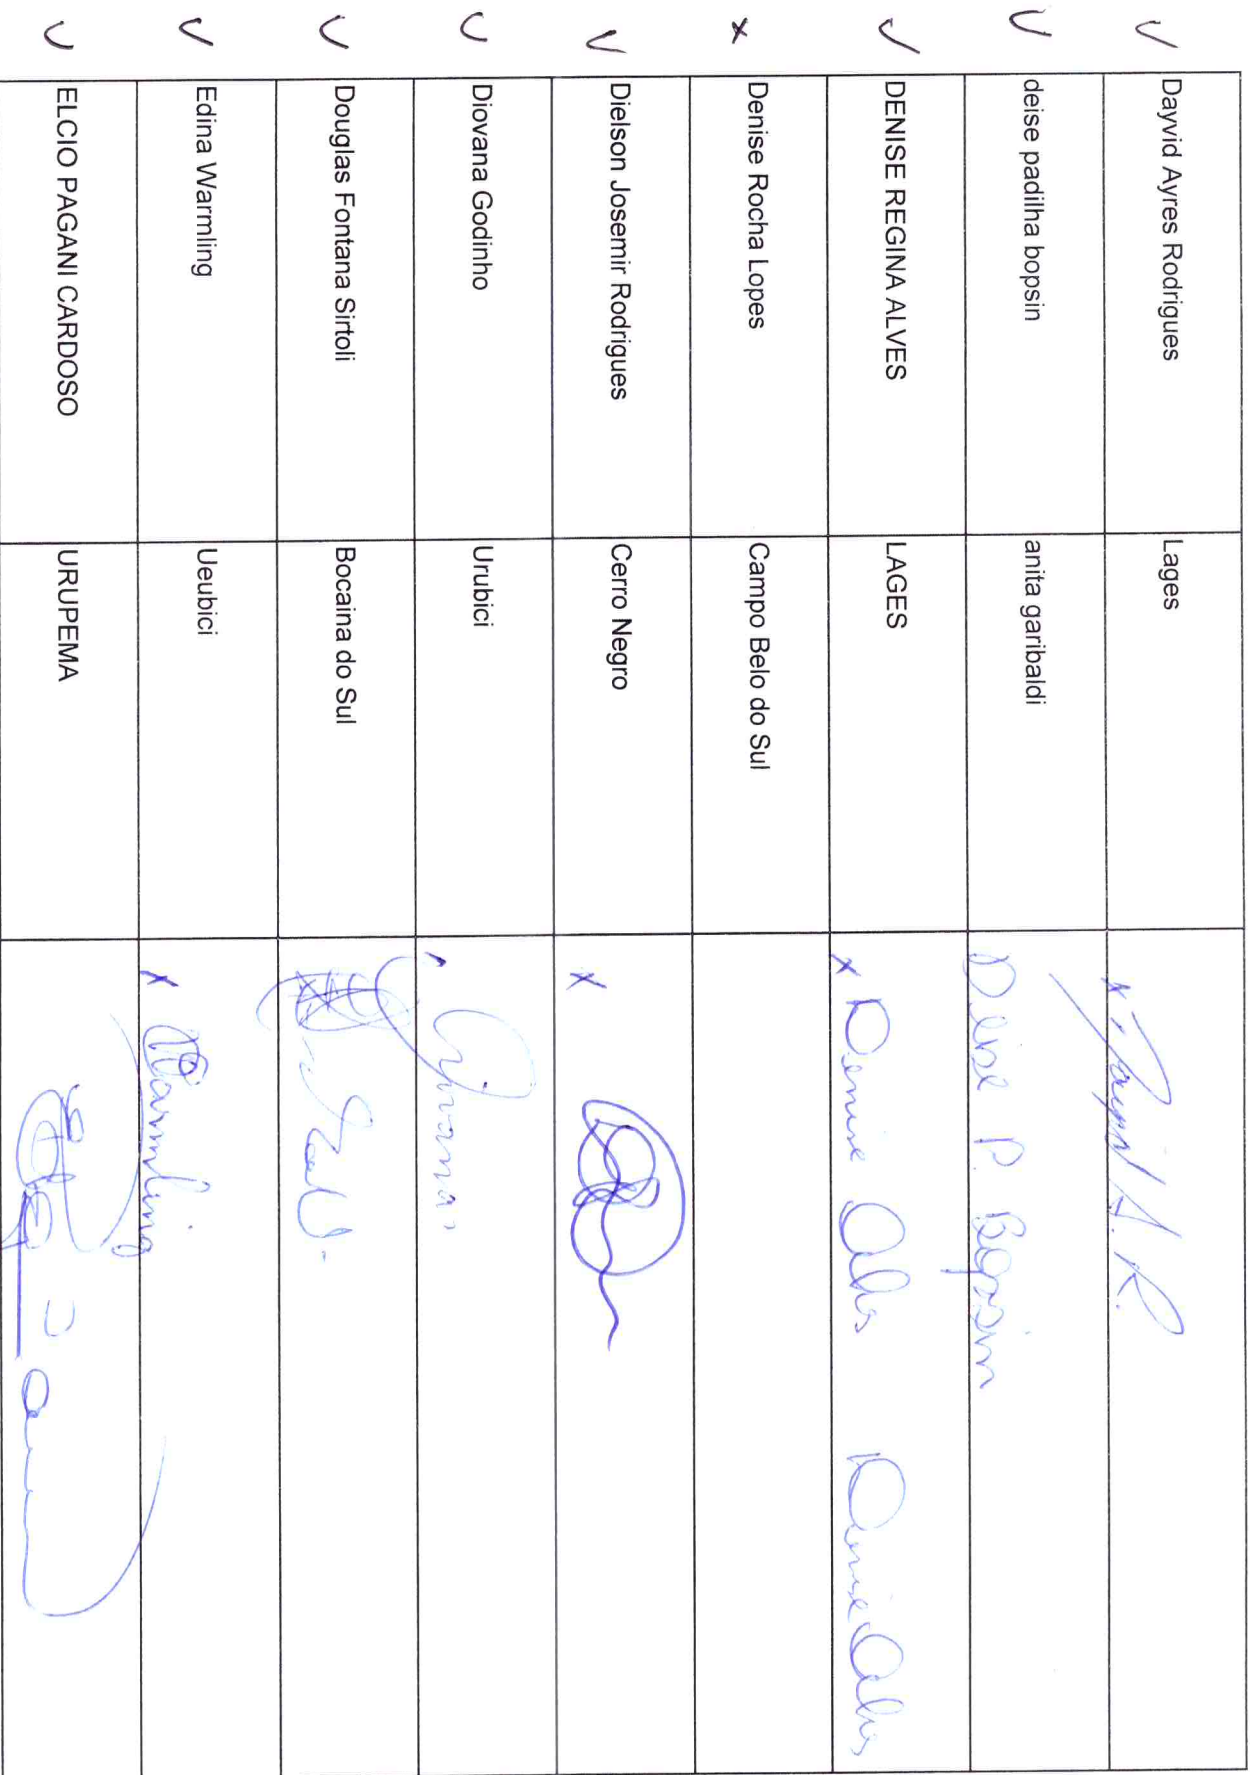 Dayvid Ayres Rodrigues Lages
deise padilha bopsin anita garibaldi Deise P. Bopsin
DENISE REGINA ALVES LAGES x Denise Alves Denise Alves
x Denise Rocha Lopes Campo Belo do Sul
Dielson Josemir Rodrigues Cerro Negro x
Diovana Godinho Urubici
Douglas Fontana Sirtoli Bocaina do Sul
Edina Warmling Ueubici x Warmling
ELCIO PAGANI CARDOSO URUPEMA